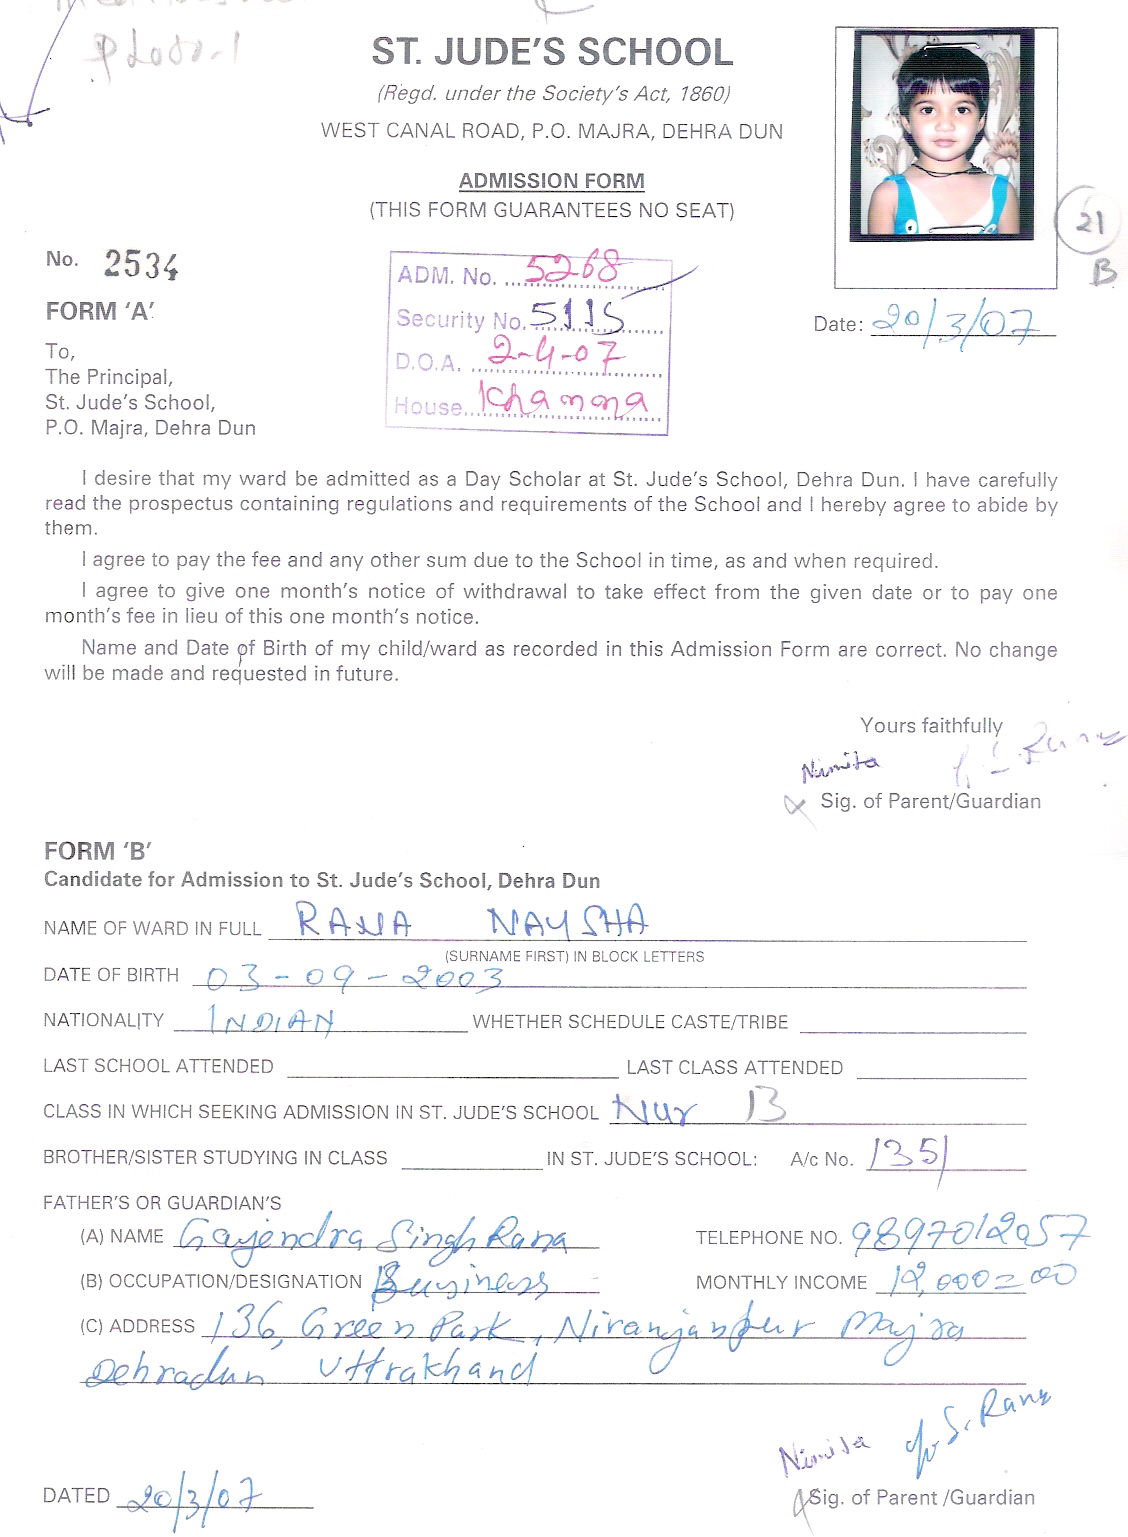 ST. JUDE'S SCHOOL
(Regd. under the Society's Act, 1860)
WEST CANAL ROAD, P.O. MAJRA, DEHRA DUN
ADMISSION FORM
(THIS FORM GUARANTEES NO SEAT)
21
B
No. 2534
ADM. No. 5268
FORM 'A'
Security No. 5115
Date: 20/3/07
D.O.A. 2-4-07
House Khanna
To,
The Principal,
St. Jude's School,
P.O. Majra, Dehra Dun
I desire that my ward be admitted as a Day Scholar at St. Jude's School, Dehra Dun. I have carefully
read the prospectus containing regulations and requirements of the School and I hereby agree to abide by
them.
I agree to pay the fee and any other sum due to the School in time, as and when required.
I agree to give one month's notice of withdrawal to take effect from the given date or to pay one
month's fee in lieu of this one month's notice.
Name and Date of Birth of my child/ward as recorded in this Admission Form are correct. No change
will be made and requested in future.
Yours faithfully
Nimita Rana
Sig. of Parent/Guardian
FORM 'B'
Candidate for Admission to St. Jude's School, Dehra Dun
NAME OF WARD IN FULL RANA NAYSHA
(SURNAME FIRST) IN BLOCK LETTERS
DATE OF BIRTH 03-09-2003
NATIONALITY INDIAN WHETHER SCHEDULE CASTE/TRIBE
LAST SCHOOL ATTENDED LAST CLASS ATTENDED
CLASS IN WHICH SEEKING ADMISSION IN ST. JUDE'S SCHOOL Nur B
BROTHER/SISTER STUDYING IN CLASS IN ST. JUDE'S SCHOOL: A/c No. 1351
FATHER'S OR GUARDIAN'S
(A) NAME Gajendra Singh Rana TELEPHONE NO. 9897012057
(B) OCCUPATION/DESIGNATION Business MONTHLY INCOME 12,000=00
(C) ADDRESS 136, Green Park, Niranjanpur Majra
Dehradun Uttrakhand
Nimita S. Rana
DATED 20/3/07 Sig. of Parent /Guardian